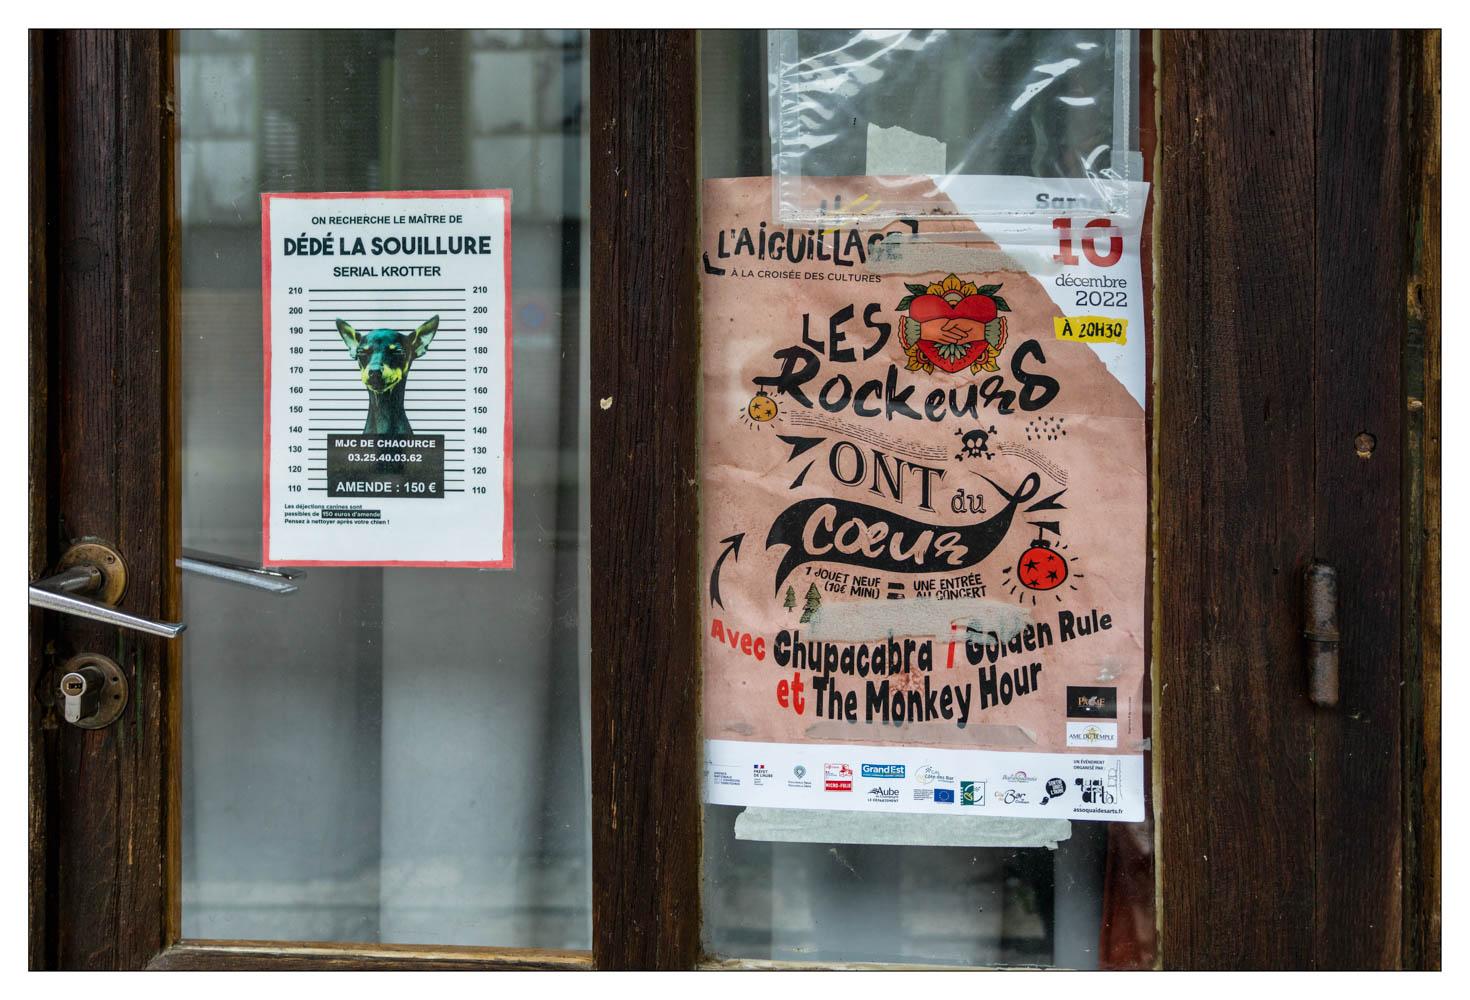 ON RECHERCHE LE MAÎTRE DE
DÉDÉ LA SOUILLURE
SERIAL KROTTER
210 210
200 200
190 190
180 180
170 170
160 160
150 150
140 140
130 130
120 120
110 110
MJC DE CHAOURCE
03.25.40.03.62
AMENDE : 150 €
Les déjections canines sont
passibles de 150 euros d'amende
Pensez à nettoyer après votre chien !
L'AiGUiLLAGE
À LA CROISÉE DES CULTURES
10
décembre
2022
À 20H30
LES
RockeurS
ONT du
Cœur
1 JOUET NEUF
(10€ MINI) = UNE ENTRÉE
AU CONCERT
Avec Chupacabra / Golden Rule
et The Monkey Hour
AME DU TEMPLE
PRÉFET
DE L'AUBE
MICRO-FOLIE
GrandEst
Aube
LE DÉPARTEMENT
Côte des Bar
Bar
UN ÉVÉNEMENT
ORGANISÉ PAR :
assoquaidesarts.fr